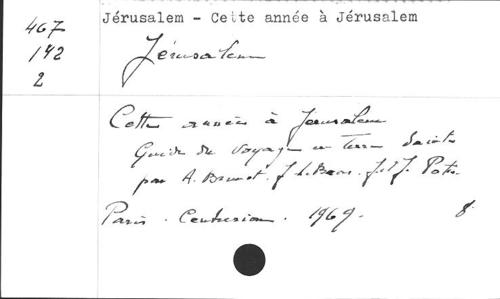 467
142
2
Jérusalem - Cette année à Jérusalem
Jérusalem
Cette année à Jerusalem
Guide du voyage en Terre Sainte
par A. Brunot. J. L. J. et J. Potin
Paris. Centurion. 1969. 8°